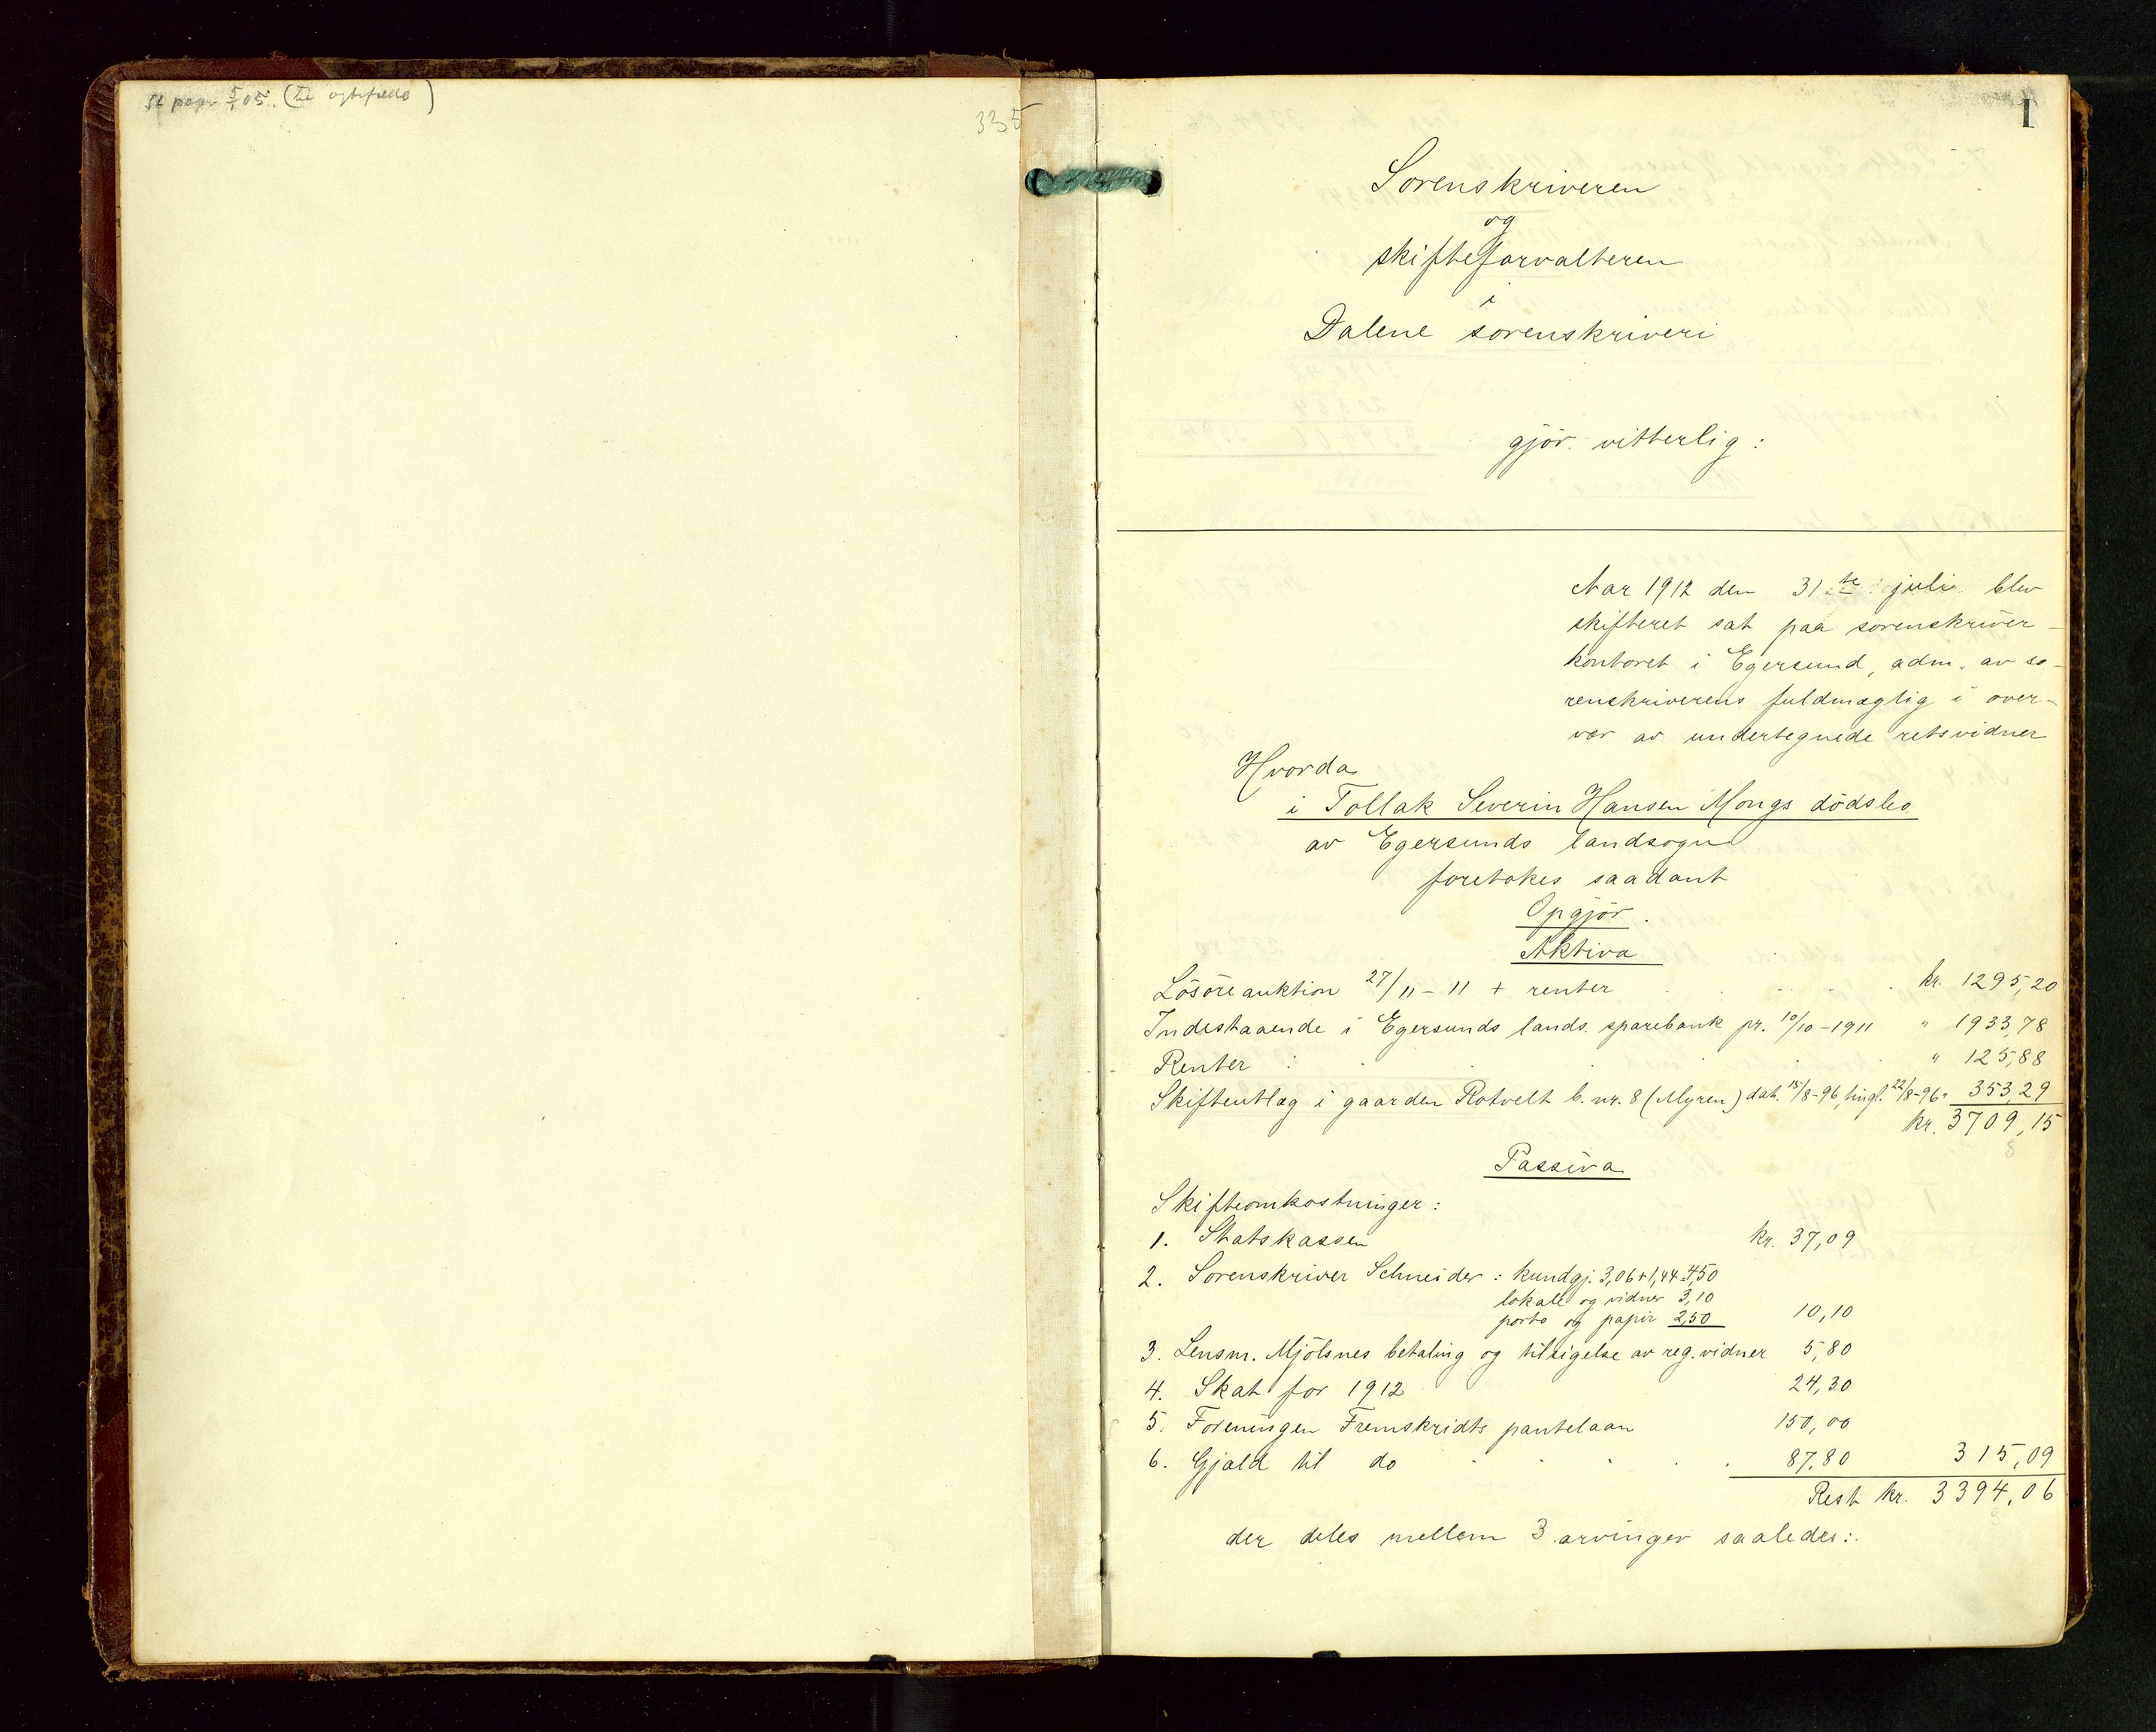 335
1
Sorenskriveren
og
skifteforvalteren
i
Dalene sorenskriveri
gjör vitterlig:
Aar 1912 den 31.te juli blev
skifteret sat paa sorenskriver-
kontoret i Egersund, adm. av so-
renskriverens fuldmægtig i over-
vær av undertegnede retsvidner
Hvorda
i Tollak Severin Hansen Mongs dödsbo
av Egersunds landsogn
foretokes saadant
Opgjör.
Aktiva
Lösöreauktion 27/11-11 + renter kr. 1295,20
Indestaaende i Egersunds lands. sparebank pr. 10/10-1911 " 1933,78
Renter : " 125,88
Skifteutlæg i gaarden Rotvelt b.nr. 8 (Myren) dat. 15/8-96, tingl. 22/8-96 " 353,29
kr. 3709,15
Passiva
Skifteomkostninger:
1. Statskassen kr. 37,09
2. Sorenskriver Schneider: kundgj. 3,06+1,44=4,50
lokale og vidner 3,10
porto og papir 2,50 10,10
3. Lensm. Mjölsnes betaling og tilsigelse av reg. vidner 5,80
4. Skat for 1912 24,30
5. Foreningen Fremskridts pantelaan 150,00
6. Gjæld til do 87,80 315,09
Rest kr. 3394,06
der deles mellem 3 arvinger saaledes: